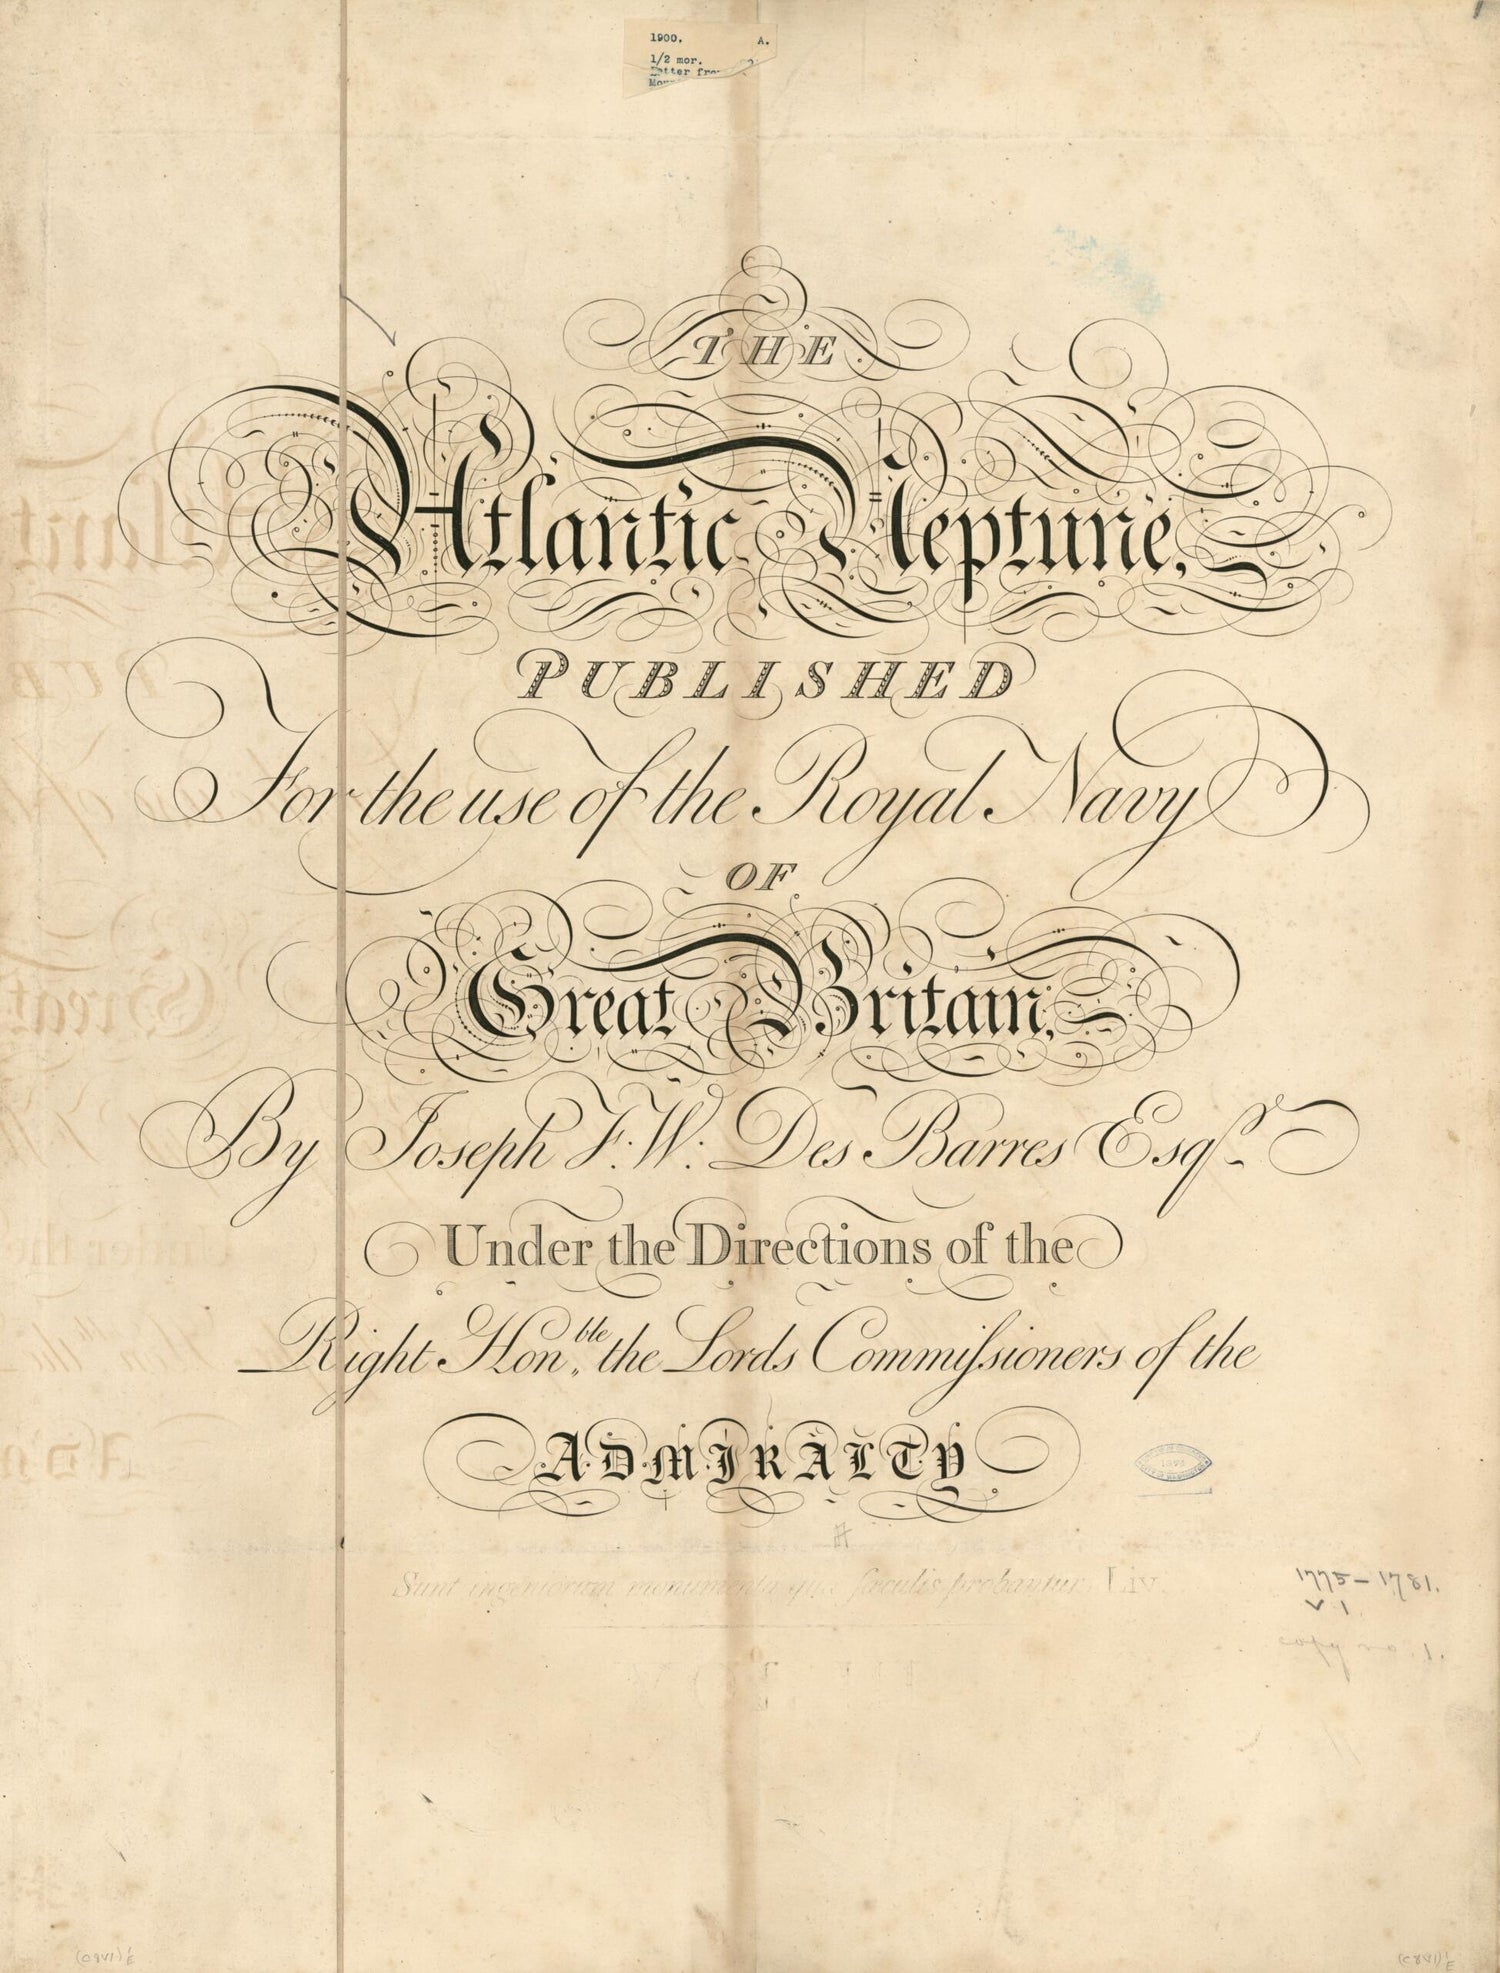 1900. A.
1/2 mor.
THE
Atlantic Neptune,
PUBLISHED
For the use of the Royal Navy
OF
Great Britain,
By Joseph F. W. Des Barres Esqr.
Under the Directions of the
Right Honble the Lords Commiſsioners of the
ADMIRALTY
Sunt ingeniorum monumenta quæ ſæculis probantur. Liv.
1775-1781.
v. 1
copy no. 1.